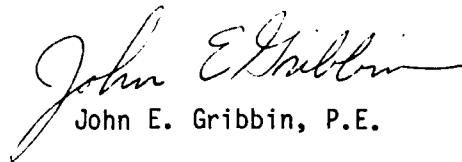 John E Gribbin
John E. Gribbin, P.E.